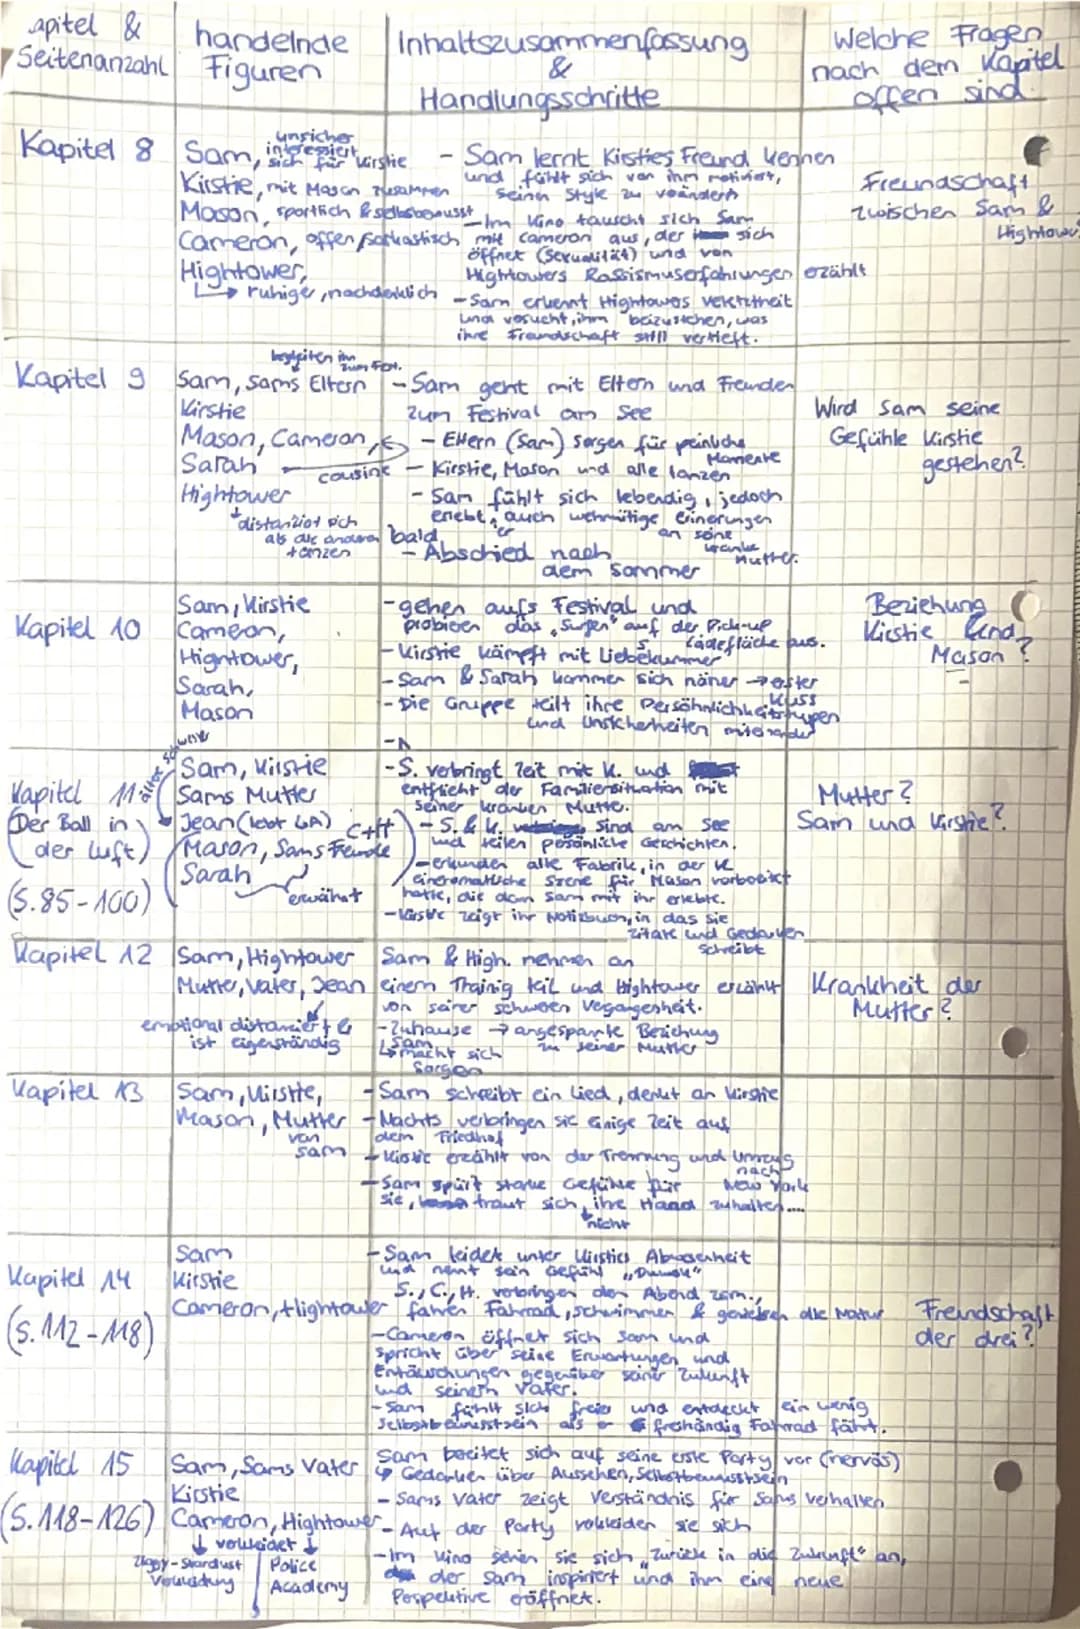 apitel & Seitenanzahl
handelnde Figuren
Inhaltszusammenfassung & Handlungsschritte
Welche Fragen nach dem Kapitel offen sind
Kapitel 8
Sam, unsicher interessiert sich für Kirstie
Kirstie, mit Mason zusammen
Mason, sportlich & selbsbewusst
Cameron, offen/sarkastisch
Hightower,
↳ ruhiger, nachdenklich
- Sam lernt Kirsties Freund kennen
und fühlt sich von ihm motiviert,
seinen Style zu verändern
- Im Kino tauscht sich Sam
mit Cameron aus, der sich
öffnet (Sexualität) und von
Hightowers Rassismuserfahrungen erzählt
- Sam erkennt Hightowers Verletztheit
und versucht, ihm beizustehen, was
ihre Freundschaft still vertieft.
Freundschaft
zwischen Sam &
Hightower
Kapitel 9
begleiten ihn zum Fest.
Sam, Sams Eltern
Kirstie
Mason, Cameron,
Sarah
cousine
Hightower
distanziert sich
als die anderen
tanzen
- Sam geht mit Eltern und Freunden
zum Festival am See
- Eltern (Sam) sorgen für peinliche
Momente
- Kirstie, Mason und alle tanzen
- Sam fühlt sich lebendig, jedoch
erlebt er auch wehmütige Erinerungen
an seine
kranke
Mutter.
bald
- Abschied nach
dem Sommer
Wird Sam seine
Gefühle Kirstie
gestehen?
Kapitel 10
Sam, Kirstie
Cameron,
Hightower,
Sarah,
Mason
- gehen aufs Festival und
probieren das "Surfen" auf der Pick-up
Ladefläche aus.
- Kirstie kämpft mit Liebeskummer
- Sam & Sarah kommen sich näher → erster
Kuss
- Die Gruppe teilt ihre Persönlichkeitstypen
und Unsicherheiten miteinander
Beziehung
Kirstie und
Mason?
Kapitel 11
(Der Ball in
der Luft)
(S. 85-100)
Sam, Kirstie
Sams Mutter
Jean (lebt LA)
C+H
Mason, Sams Freunde
Sarah
erwähnt
- S. verbringt Zeit mit K. und
entflieht der Familiensituation mit
seiner kranken Mutter.
- S. & K. sind am See
und teilen persönliche Geschichten.
- erkunden alte Fabrik, in der K
eine romantische Szene für Mason vorbereitet
hatte, die dann Sam mit ihr erlebte.
- Kirstie zeigt ihr Notizbuch, in das sie
Zitate und Gedanken
schreibt
Mutter?
Sam und Kirstie?
Kapitel 12
Sam, Hightower
Mutter, Vater, Jean
emotional distanziert &
ist eigenständig
Sam & High. nehmen an
einem Trainig teil und Hightower erzählt
von seiner schweren Vegangenheit.
- Zuhause → angespannte Beziehung
zu seiner Mutter
↳ Sam macht sich
Sorgen
Krankheit der
Mutter?
Kapitel 13
Sam, Kirstie,
Mason, Mutter
von
Sam
- Sam schreibt ein Lied, denkt an Kirstie
- Nachts verbringen sie einige Zeit auf
dem Friedhof
- Kirstie erzählt von der Trennung und Umzug
nach
New York
- Sam spürt starke Gefühle für
sie, traut sich, ihre Hand zuhalten....
nicht
Kapitel 14
(S. 112-118)
Sam
Kirstie
Cameron, Hightower
- Sam leidet unter Kirsties Abwesenheit
und nennt sein Gefühl
S., C., H. verbringen den Abend zsm.,
fahren Fahrrad, schwimmen & genießen die Natur
- Cameron öffnet sich Sam und
spricht über seine Erwartungen und
Entäuschungen gegenüber seiner Zukunft
und seinem Vater.
- Sam fühlt sich freier und entdeckt ein wenig
Selbstbewusstsein als er freihändig Fahrrad fährt.
Freundschaft
der drei?
Kapitel 15
(S. 118-126)
Sam, Sams Vater
Kirstie
Cameron, Hightower
↓ verkleidet ↓
Ziggy-Stardust
Verkleidung
Police
Academy
Sam bereitet sich auf seine erste Party vor (nervös)
↳ Gedanken über Aussehen, Selbstbewusstsein
- Sams Vater zeigt Verständnis für Sams Verhalten
- Auf der Party verkleiden sie sich
- Im Kino sehen sie sich „Zurück in die Zukunft" an,
der Sam inspiriert und ihm eine neue
Perspektive eröffnet.